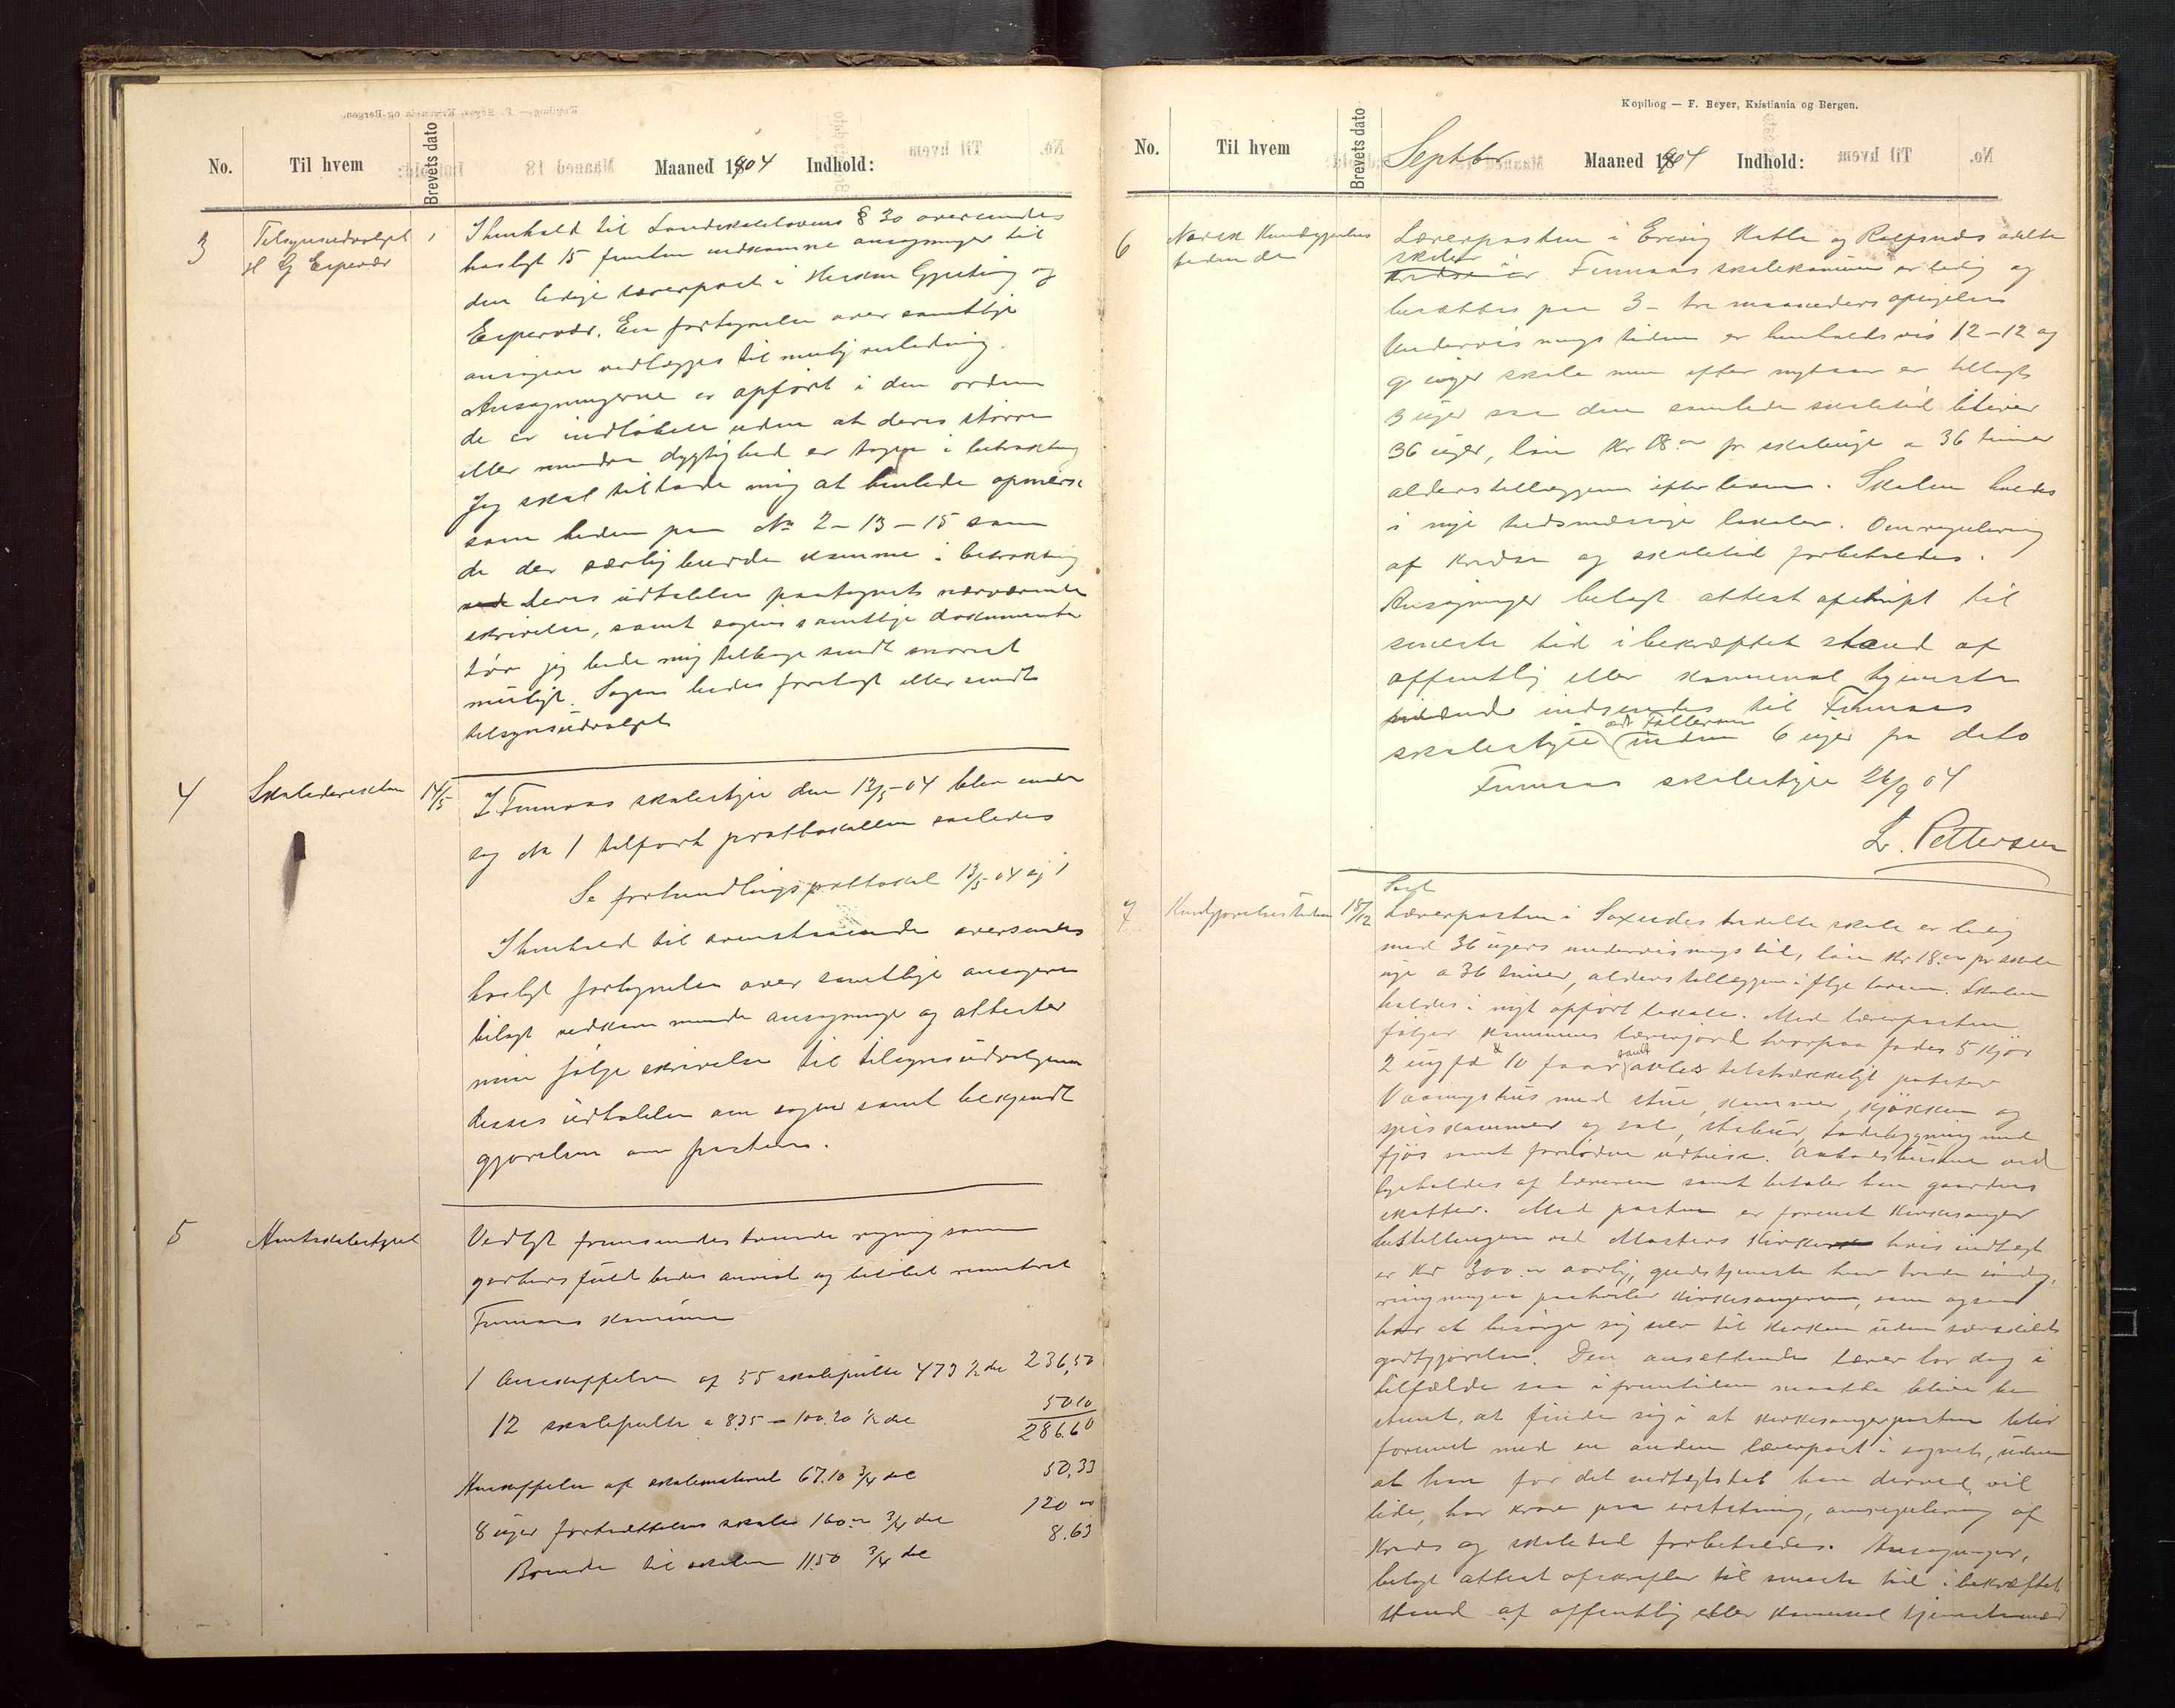 No.
Til hvem
Brevets dato
Maaned 1904
Indhold:
3
Tilsynsudvalget
H G Espevær
I henhold til Landskolelovens § 30 oversendes
hoslagt 15 femten indkomne ansøgninger til
den ledige lærerpost i Hiskem Gjeiting og
Espevær. En fortegnelse over samtlige
ansøgere vedlægges til mulig veiledning.
Ansøgningerne er opført i den orden
de er indløbne uden at deres større
eller mindre dygtighed er tagen i betraktning
Jeg skal tillade mig at henlede opmerk
somheden paa No 2 – 13 – 15 som
de der særlig burde komme i betraktning
deres udtalelse paategnet nærværende
skrivelse, samt sagens samtlige dokumenter
tør jeg bede mig tilbage sendt snarest
muligt. Sagen bedes forelagt eller sendt
tilsynsudvalget
4
Skoledirektøren
14/5
I Finnaas skolestyre den 13/5-04 blev under
sag No 1 tilført prottokollen saaledes
Se forhandlingsprottokol 13/5 04 sag 1
I henhold til ovenstaaende oversendes
hoslagt fortegnelse over samtlige ansøgere
bilagt vedkommende ansøgninge og attester
min følge skrivelse til tilsynsudvalgene
disses udtalelse om sagen samt bekjendt
gjørelsen om posten.
5
Amtsskolestyret
Vedlagt fremsendes regning som
godhedsfuld bedes anvist og beløbet remitteret
Finnaas kommune
1 Anskaffelse af 55 skolepulte 473 ½ del 236,50
12 skolepulte a 8.35 – 100.20 ½ del 50 10
286.60
Anskaffelse af skolemateriel 67.10 ¾ del 50,33
8 uger fortsættelses skole 160.00 ¾ del 120 00
Brænde til skolen 11.50 ¾ del 8.63
Kopibog — F. Beyer, Kristiania og Bergen.
No.
Til hvem
Brevets dato
Septbr
Maaned 1904
Indhold:
6
Norsk Kundgjørelses
tidende
Lærerposten i Everig Katle og Rolfsnes delte
skoler
Finnaas skolekommune er ledig og
besættes paa 3 – tre maaneders opsigelse
Undervisnings tiden er henholdsvis 12 – 12 og
9 uger skole men efter nytaar er tillagt
3 uger saa den samlede skoletid bliver
36 uger, løn Kr 18.00 pr skoleuge a 36 timer
alderstillæggene efter loven. Skolen holdes
i nye tidsmæssige lokaler. Omregulering
af kredse og skoletid forbeholdes.
Ansøgninger belagt attest afskrift til
seneste tid i bekræftet stand af
offentlig eller kommunal tjeneste
mænd indsendes til Finnaas
skolestyre inden 6 uger fra dato
Finnaas skolestyre 26/9 04
L. Pettersen
7
Kundgjørelsestidende
18/12
Lærerposten i Søxudes todelte skole er ledig
med 36 ugers undervisningstid, løn Kr 18.00 pr skole
uge a 36 timer, alderstillæggene ifølge loven. Skolen
holdes i nyt opført lokale. Med lærerposten
følger kommunens lærerjord hvorpaa fødes 5 kjør
2 ungfæ 10 faar samt avles tilstrækkeligt poteter
Vaaningshus med stue, kammer, kjøkken og
spiskammer og sal, stabur, ladebygning med
fjøs samt fornødne udhuse. Aabodshusene ved
ligeholdes af læreren samt betaler han gaardens
skatter. Med posten er forenet kirkesanger
bestillingen ved Mosters kirke hvis indtægt
er Kr 300.00 aarlig, gudstjeneste hver tredie søndag,
ringningen paahviler kirkesangeren, som ogsaa
har at besørge sig selv til kirken uden særskildt
godtgjørelse. Den ansættende lærer har dog i
tilfælde saa i fremtiden maatte blive be
stemt, at finde sig i at kirkesangerposten blir
forenet med en anden lærerpost i sognet, uden
at han for det indtægtstab han derved vil
lide, har krav paa erstatning, omregulering af
kreds og skoletid forbeholdes. Ansøgninger,
belagt attest afskrifter til seneste tid i bekræftet
stand af offentlig eller kommunal tjenestemænd